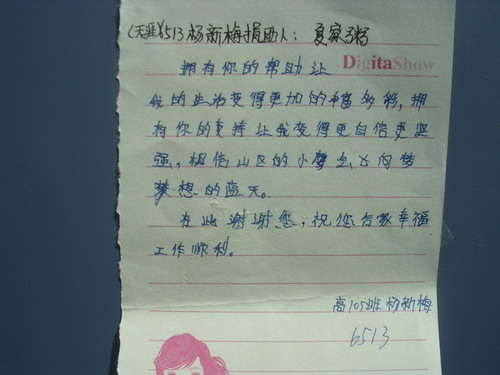 (天涯)6513杨新梅捐助人：夏家粥
DigitaShow
拥有你的帮助让
我的生活变得更加的丰富多彩，拥
有你的支持让我变得更自信更坚
强，相信山区的小鹰会飞向梦
梦想的蓝天。
在此谢谢您，祝您合家幸福
工作顺利。
高105班杨新梅
6513